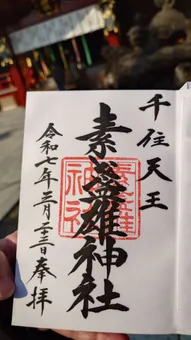 千住天王
素盞雄神社
令和七年三月二十三日奉拝
素盞雄神社